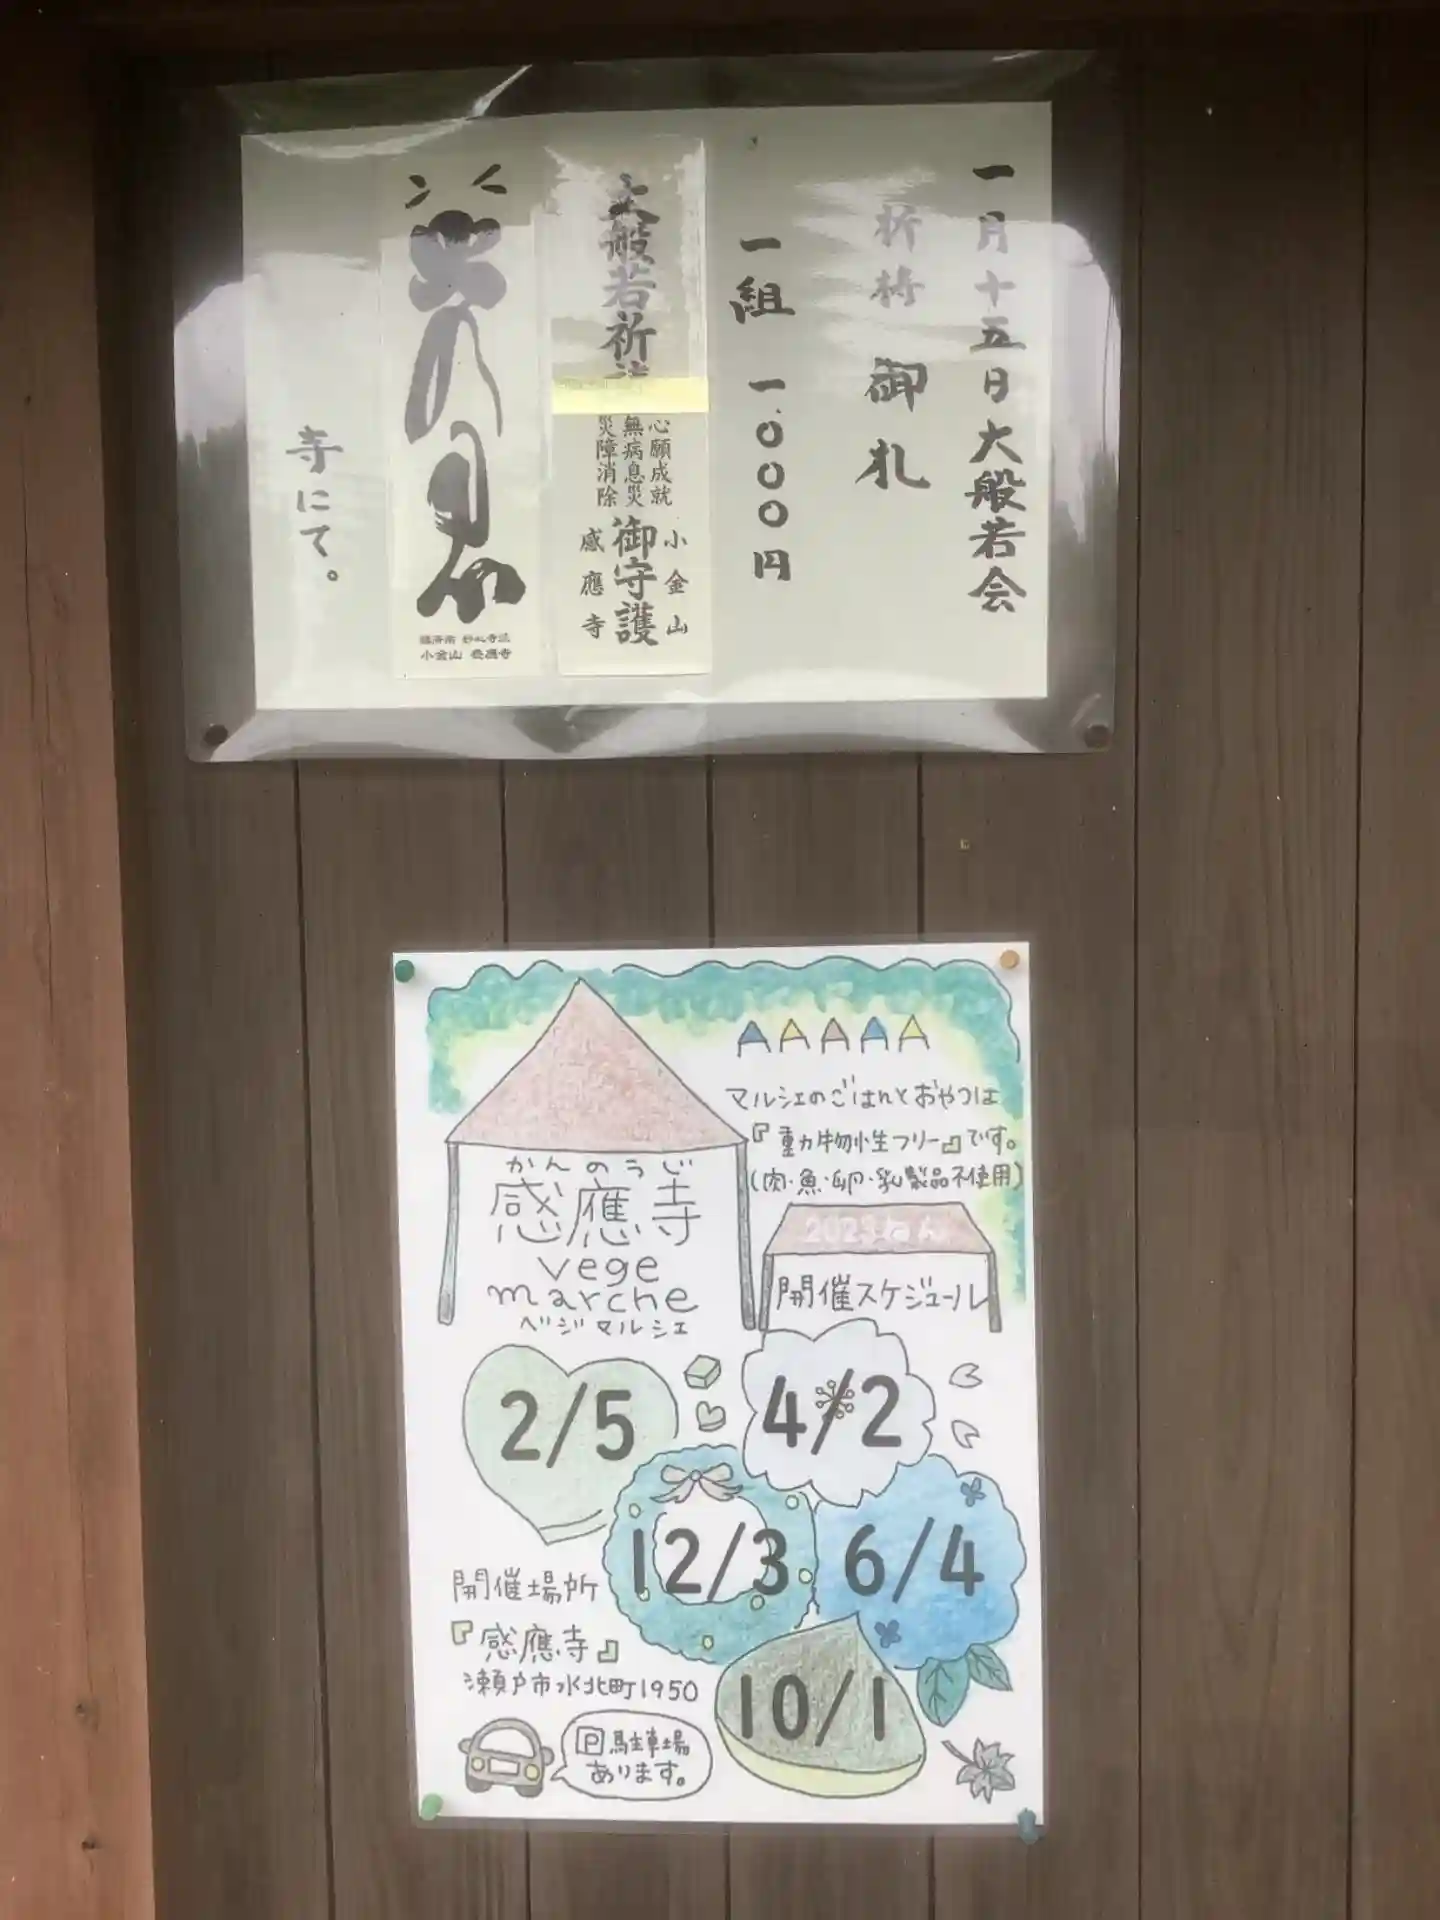 一月十五日大般若会
祈祷 御札
一組 一〇〇〇円
大般若祈
心願成就
無病息災
災障消除
御守護
小金山
感應寺
小金山 感應寺
寺にて。
マルシェのごはんとおやつは
『動物性フリー』です。
(肉・魚・卵・乳製品不使用)
かんのうじ
感應寺
vege
marche
ベジマルシェ
2023ねん
開催スケジュール
2/5
4/2
12/3
6/4
10/1
開催場所
『感應寺』
瀬戸市水北町1950
P駐車場
あります。